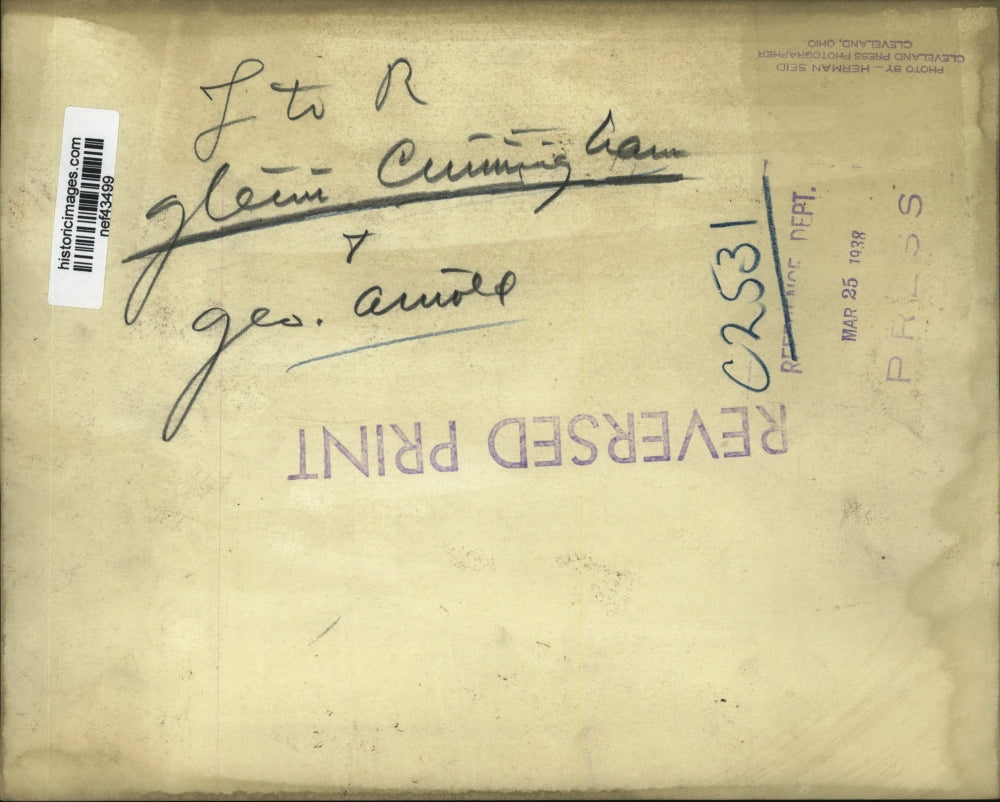 L to R
Glenn Cunningham
+
Geo. Arnold
historicimages.com
nef43499
PHOTO BY — HERMAN SEID
CLEVELAND PRESS PHOTOGRAPHER
CLEVELAND, OHIO
C2531
REFERENCE DEPT.
MAR 25 1938
PRESS
REVERSED PRINT